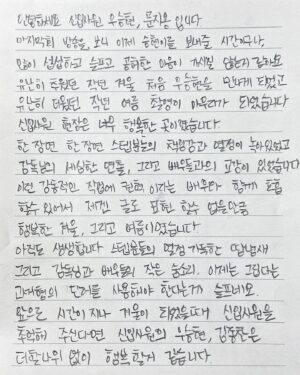 안녕하세요 신입사원 우승현, 문지용 입니다
마지막회 방송을 보니 이제 승현이를 보내줄 시간이구나,
많이 섭섭하고 슬프고 공허한 마음이 가시질 않는거 같아요
유난히 추웠던 작년 겨울 처음 우승현을 만나게 되었고
유난히 더웠던 작년 여름 촬영이 마무리가 되었습니다
신입사원 현장은 너무 행복한 곳이였습니다.
한 장면 한 장면 스텝분들의 책임감과 열정이 녹아있었고
감독님의 세심한 연출, 그리고 배우들과의 교감이 있었습니다
이런 감동적인 작업에 권혁 이라는 배우와 함께 호흡
할수 있어서 제겐 글로 표현 할수 없을만큼
행복한 겨울, 그리고 여름이였습니다.
아직도 생생합니다 스텝분들의 열정 가득한 땀냄새
그리고 감독님과 배우들의 작은 숨소리. 이제는 그립다는
과거형의 단어를 사용해야 한다는게 슬프네요.
앞으로 시간이 지나 겨울이 되었을때 신입사원을
추억해 주신다면 신입사원의 우승현, 김종찬은
더할나위 없이 행복할거 같습니다